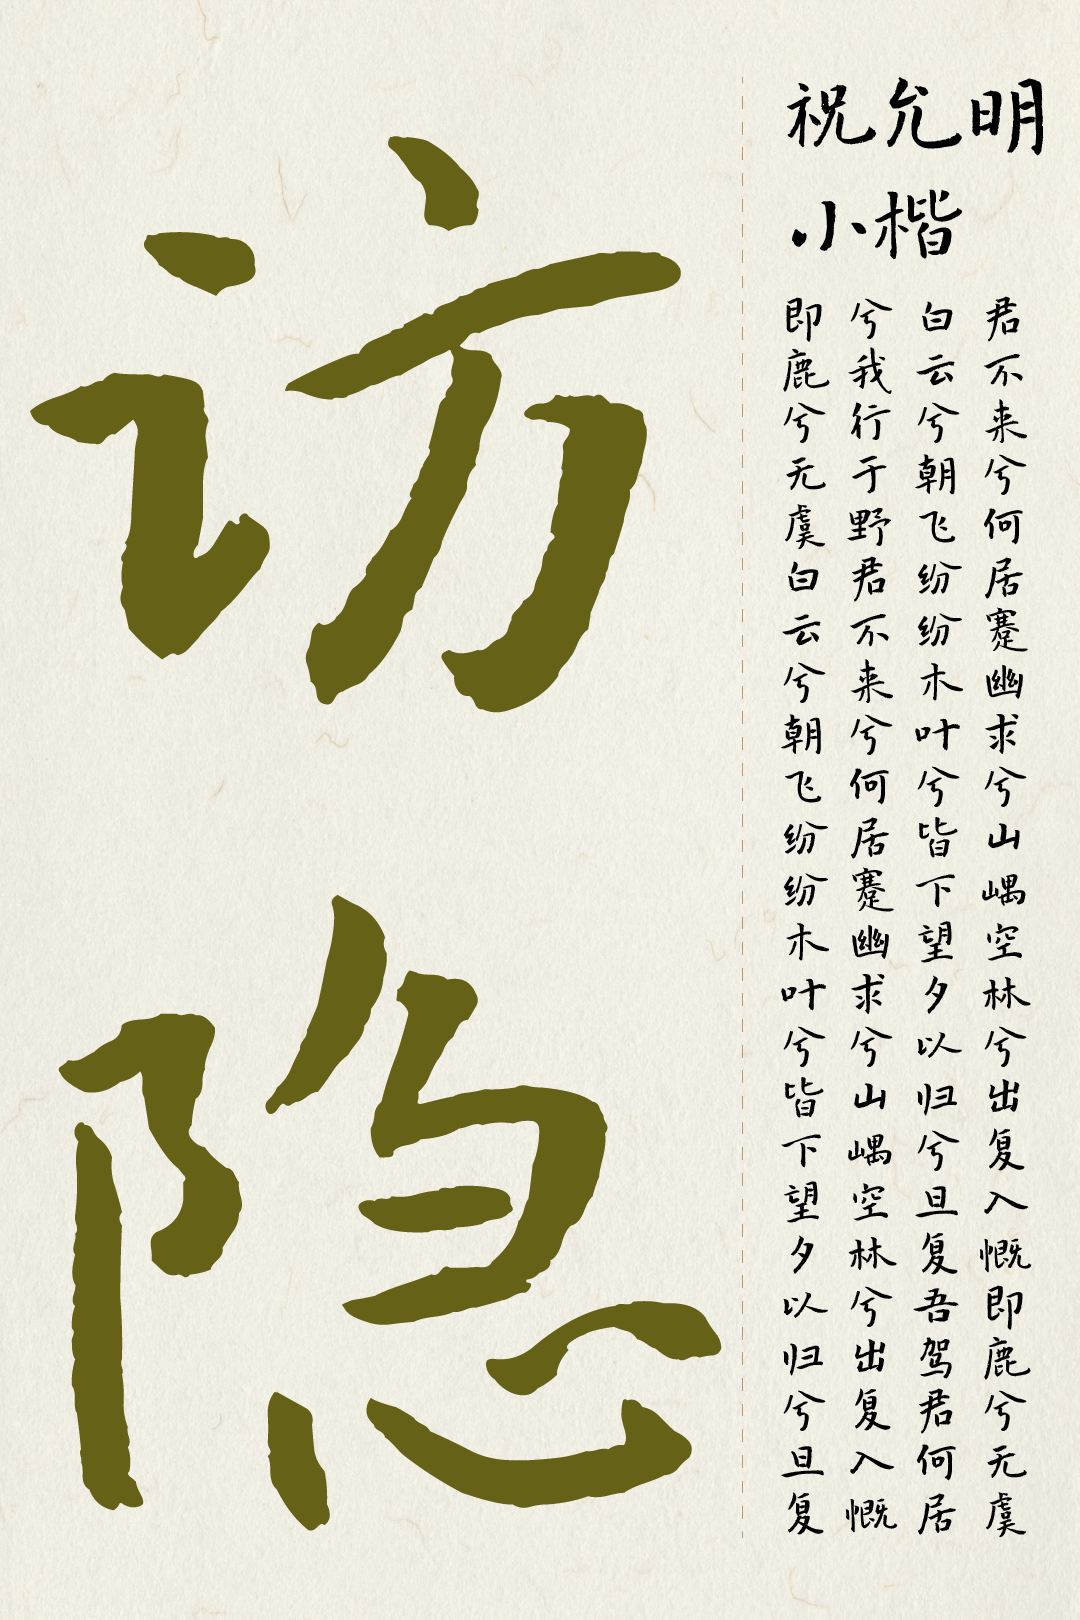 访隐
祝允明
小楷
君不来兮何居蹇幽求兮山嵎空林兮出复入慨即鹿兮无虞
白云兮朝飞纷纷木叶兮皆下望夕以归兮旦复吾驾君何居
兮我行于野君不来兮何居蹇幽求兮山嵎空林兮出复入慨
即鹿兮无虞白云兮朝飞纷纷木叶兮皆下望夕以归兮旦复